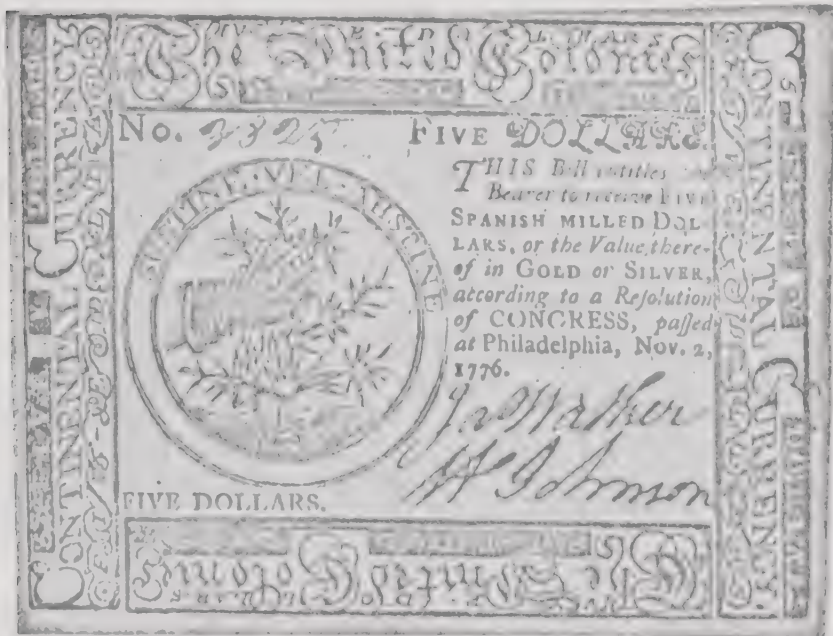 The United Colonies
CONTINENTAL CURRENCY
No. 2325 FIVE DOLLARS.
SUSTINE VEL ABSTINE
THIS Bill entitles
Bearer to receive FIVE
SPANISH MILLED DOL
LARS, or the Value there-
of in GOLD or SILVER,
according to a Reſolution
of CONGRESS, paſſed
at Philadelphia, Nov. 2,
1776.
Ja Walker
W Johnson
FIVE DOLLARS.
CONTINENTAL CURRENCY
The United Colonies